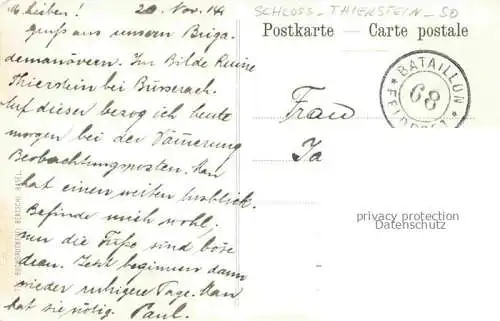 M. Lieben! 20. Nov. 14
Gruß aus unsern Briga-
demanövern. Im Bilde Ruine
Thierstein bei Büsserach.
Auf dieser bezog ich heute
morgen bei der Dämerung
Beobachtungsposten. Man
hat einen weiten Ausblick.
Befinde mich wohl,
nun die Füße sind böse
dran. Jetzt beginnen dann
wieder ruhigere Tage. Man
hat sie nötig. Paul.
SCHLOSS - THIERSTEIN - SO
Postkarte — Carte postale
BATAILLON
68
FELDPOST
Frau
Ia
privacy protection
Datenschutz